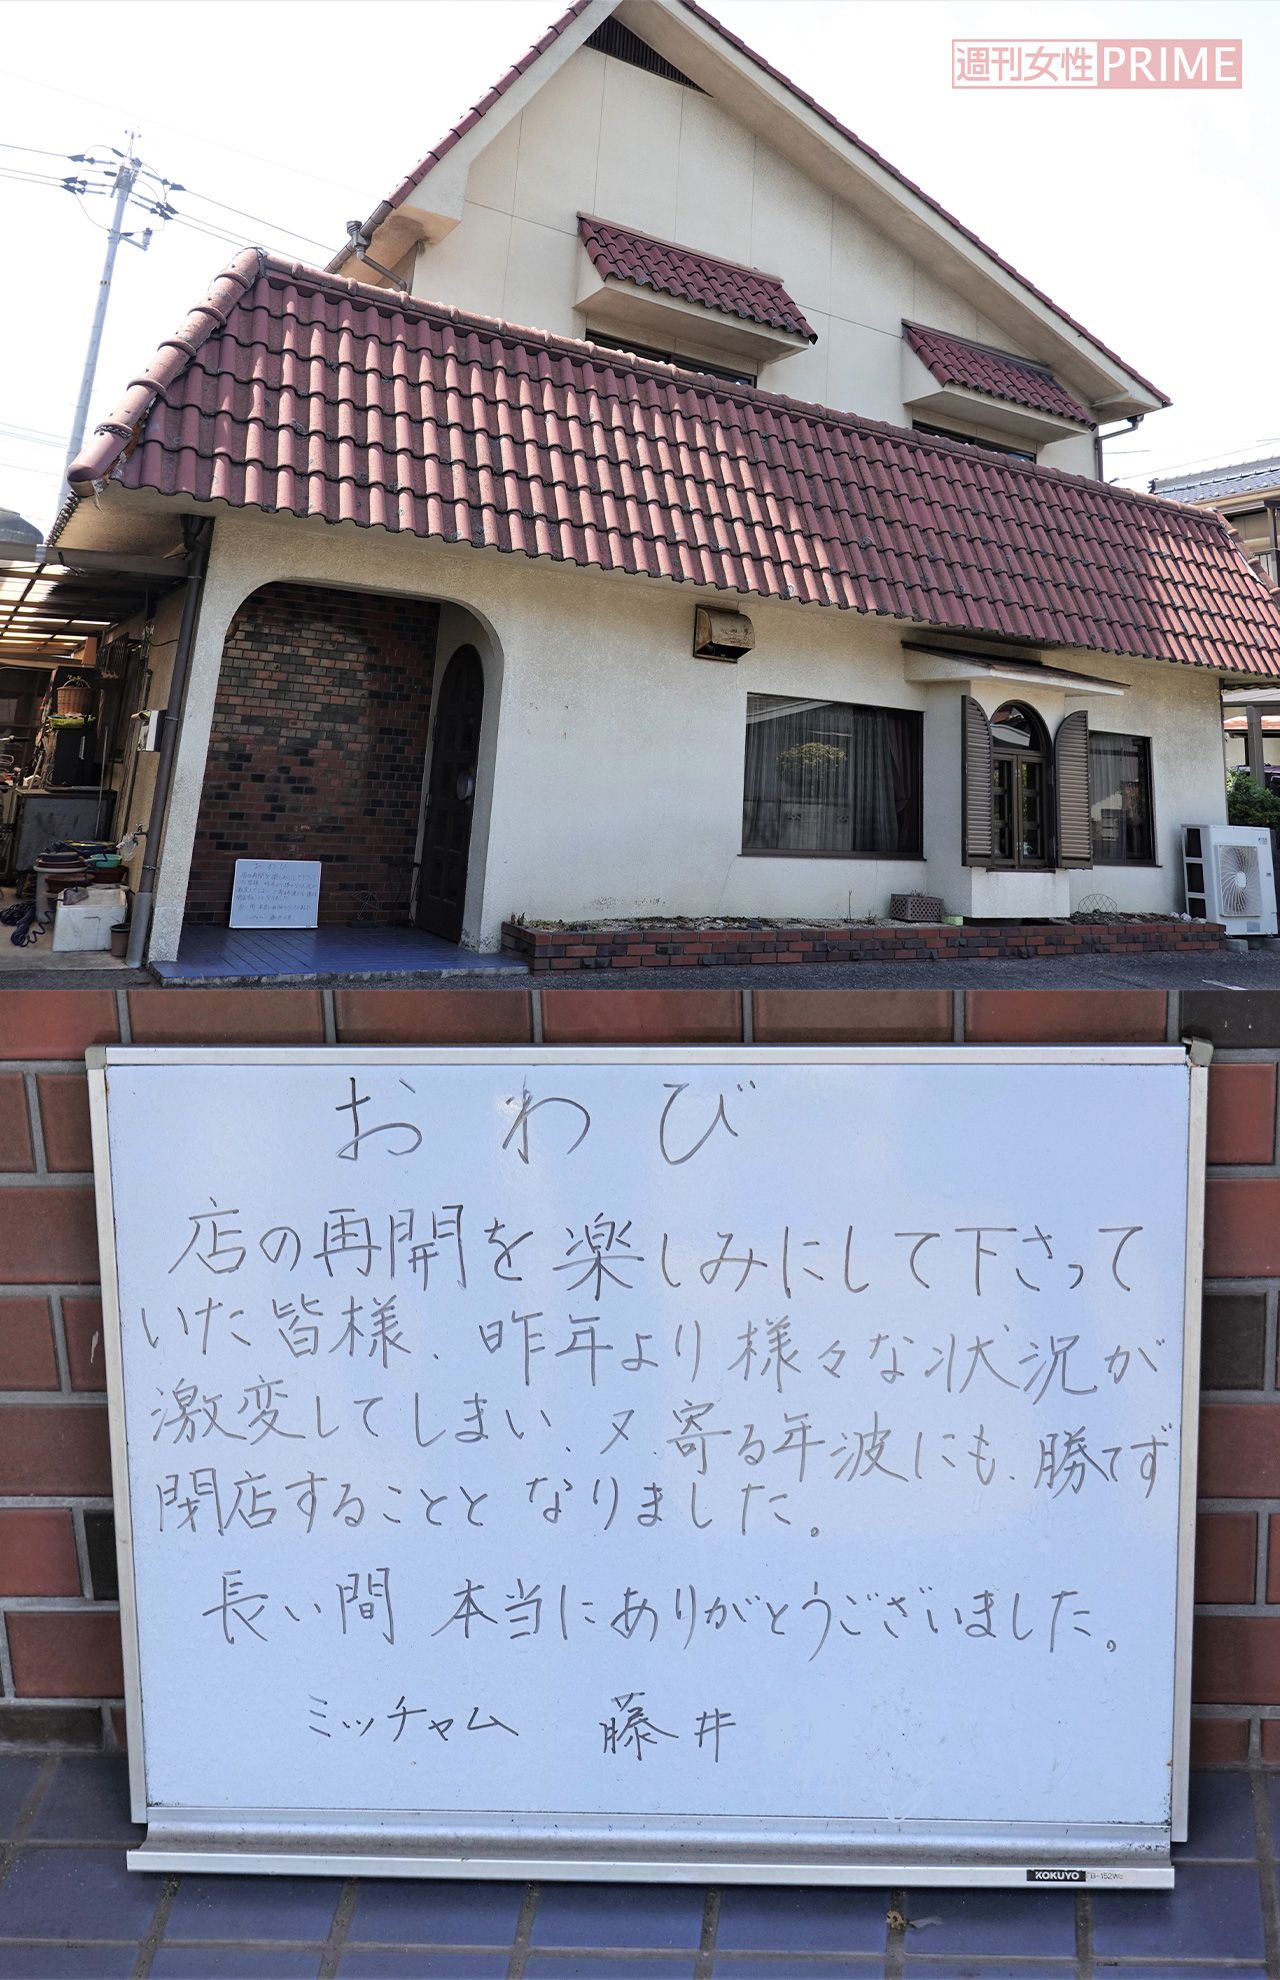 週刊女性PRIME
おわび
店の再開を楽しみにして下さって
いた皆様、昨年より様々な状況が
激変してしまい、又、寄る年波にも、勝てず
閉店することとなりました。
長い間 本当にありがとうございました。
ミッチャム 藤井
KOKUYO